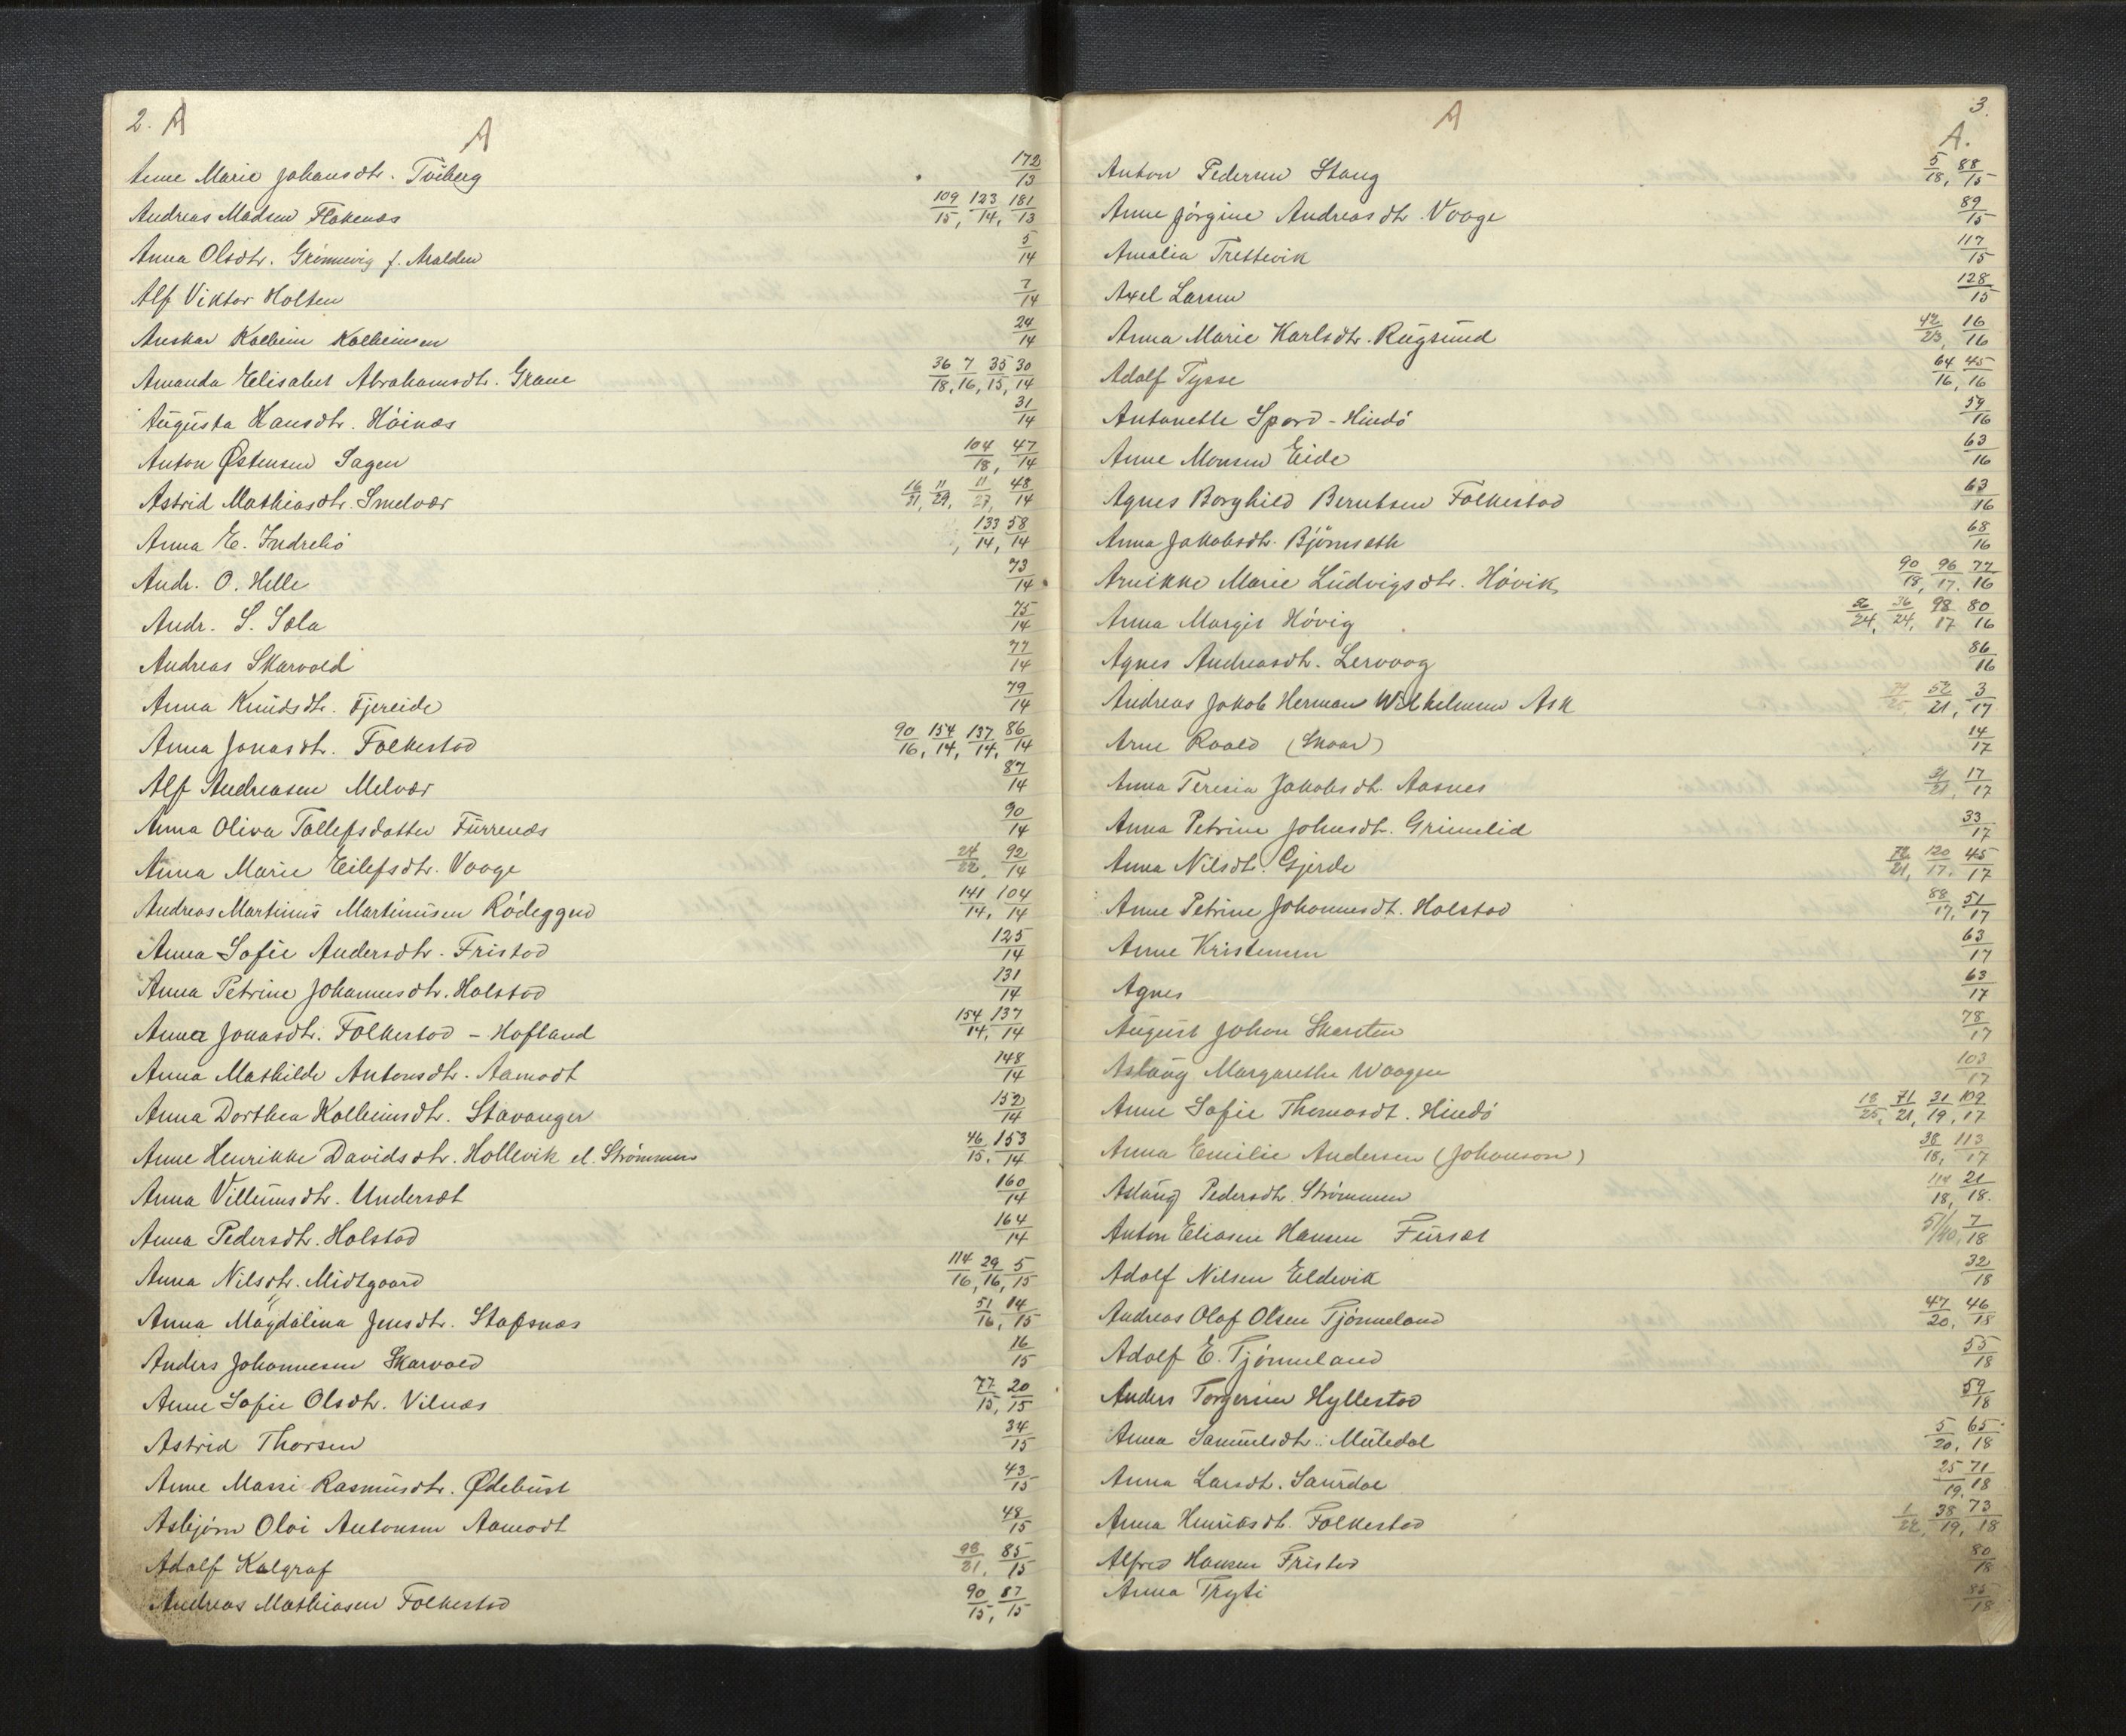 2. A
A
Anne Marie Johansdtr. Tviberg 172/13
Andreas Madsen Flokenæs 109/15, 123/14, 181/13
Anna Olsdtr. Grønnevig f. Aralden 5/14
Alf Viktor Holsen 7/14
Anskar Kolbein Kolbeinsen 24/14
Amanda Elisabet Abrahamsdtr. Grane 36/18, 7/16, 35/15, 30/14
Augusta Hansdtr. Höinæs 31/14
Anton Østensen Sagen 104/18, 47/14
Astrid Mathiasdtr. Smelvær 16/31, 11/29, 11/27, 48/14
Anna E. Indrebö 133/14, 58/14
Andr. O. Helle 73/14
Andr. S. Sola 75/14
Andreas Skarvold 77/14
Anna Knudsdtr. Fjereide 79/14
Anna Jonasdtr. Folkestad 90/16, 154/14, 137/14, 86/14
Alf Andreasen Melvær 87/14
Anna Oliva Tollefsdatter Furrenæs 90/14
Anna Marie Eilefsdtr. Vaage 24/22, 92/14
Andreas Martinus Martinusen Rödeggen 141/14, 104/14
Anna Sofie Andersdtr. Fristad 125/14
Anna Petrine Johannesdtr. Holstad 131/14
Anna Jonasdtr. Folkestad - Hofland 154/14, 137/14
Anna Mathilde Antonsdtr. Aamodt 148/14
Anna Dorthea Kolbeinsdtr. Stavanger 152/14
Anne Henrikke Davidsdtr. Hollevik el. Strömmen 46/15, 153/14
Anna Villumsdtr. Undersæt 160/14
Anna Pedersdtr. Holstad 164/14
Anna Nilsdtr. Midtgaard 114/16, 29/16, 5/15
Anna Magdalina Jensdtr. Stafsnæs 51/16, 14/15
Anders Johannesen Skarvold 16/15
Anne Sofie Olsdtr. Vilnæs 77/15, 20/15
Astrid Thorsen 34/15
Anne Massi Rasmusdtr. Ødebust 43/15
Asbjörn Olai Antonsen Aamodt 48/15
Adolf Kalgraf 98/21, 85/15
Andreas Mathiasen Folkestad 90/15, 87/15
3.
A
A.
Anton Pedersen Stang 5/18, 88/15
Anne Jörgine Andreasdtr. Vaage 89/15
Amalia Trettevik 117/15
Axel Larsen 128/15
Anna Marie Karlsdtr. Rugsund 42/23, 16/16
Adolf Tysse 64/16, 45/16
Antonette Spord - Hindö 59/16
Anne Monsen Eide 63/16
Agnes Borghild Berntsen Folkestad 63/16
Anna Jakobsdtr. Björnsæth 68/16
Arnikke Marie Ludvigsdtr. Hövik 90/18, 96/17, 77/16
Anna Margit Hövig 36/24, 98/17, 80/16
Agnes Andreasdtr. Lervaag 86/16
Andreas Jakob Herman Wilhelmsen Ask 52/21, 3/17
Arne Roald (Skaar) 14/17
Anna Teresia Jakobsdtr. Aasnes 17/17
Anna Petrine Johnsdtr. Grimelid 33/17
Anna Nilsdtr. Gjerde 120/17, 45/17
Anne Petrine Johannesdt. Holstad 88/17, 51/17
Anne Kristensen 63/17
Agnes 63/17
August Johan Skarsten 78/17
Aslaug Margarethe Waagen 103/17
Anne Sofie Thomasdt. Hindö 18/25, 71/21, 31/19, 109/17
Anna Emilie Andersen (Johanson) 38/18, 113/17
Aslaug Pedersdtr. Strömmen 114/18, 21/18.
Anton Eliasen Hansen Fursæt 51/40, 7/18
Adolf Nilsen Eldevik 32/18
Andreas Olaf Olsen Tjönneland 47/20, 46/18
Adolf E. Tjönneland 55/18
Anders Torgersen Hyllestad 59/18
Anna Samuelsdtr. Muledal 5/20, 65/18
Anna Larsdt. Saurdal 25/19, 71/18
Anna Henriksdt. Folkestad 1/22, 38/19, 73/18
Alfred Hansen Fristad 80/18
Anna Tryti 85/18